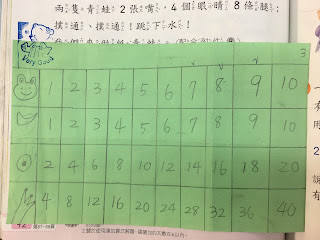 兩隻青蛙2張嘴,4個眼睛8條腿;
撲通、撲通!跳下水!
Very Good
3
1 2 3 4 5 6 7 8 9 10
1 2 3 4 5 6 7 8 9 10
2 4 6 8 10 12 14 16 18 20
4 8 12 16 20 24 28 32 36 40